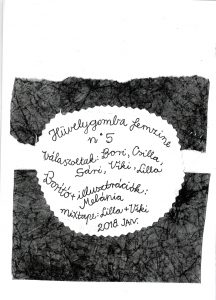 Hüvelygomba femzine
n°5
Válaszoltak: Bori, Csilla,
Sári, Viki, Lilla
Borító + illusztrációk:
Melánia
mixtape: Lilla + Viki
2018 JAN.